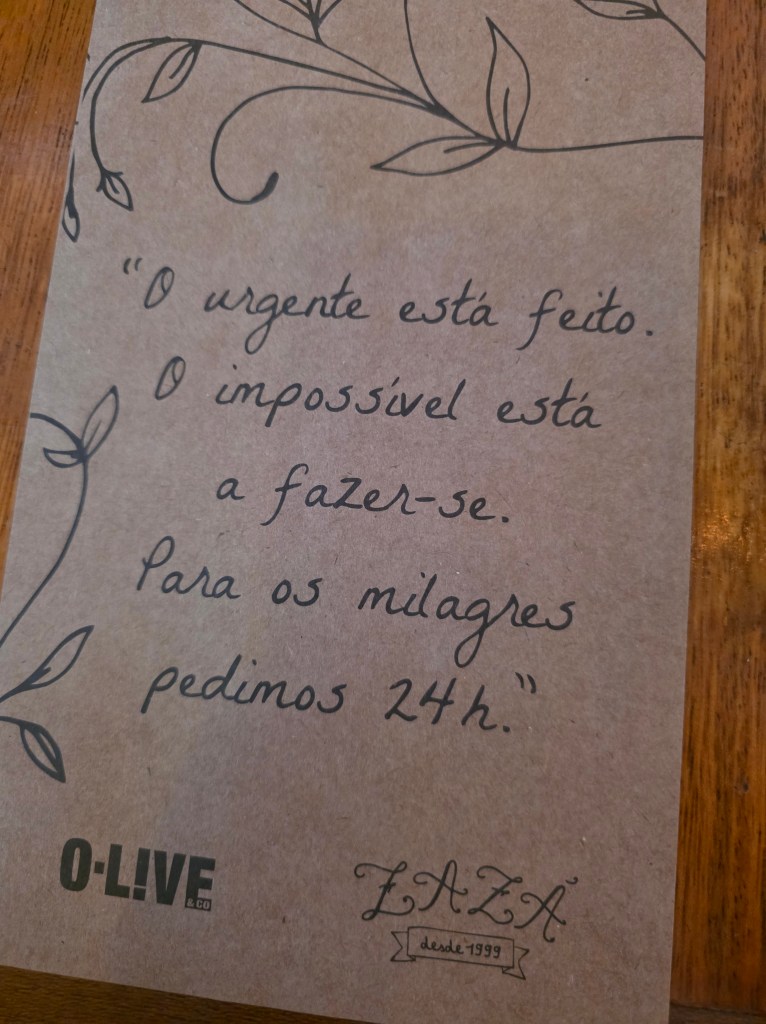 “O urgente está feito.
O impossível está
a fazer-se.
Para os milagres
pedimos 24h.”
O·L!VE
&CO
ZAZÁ
desde 1999